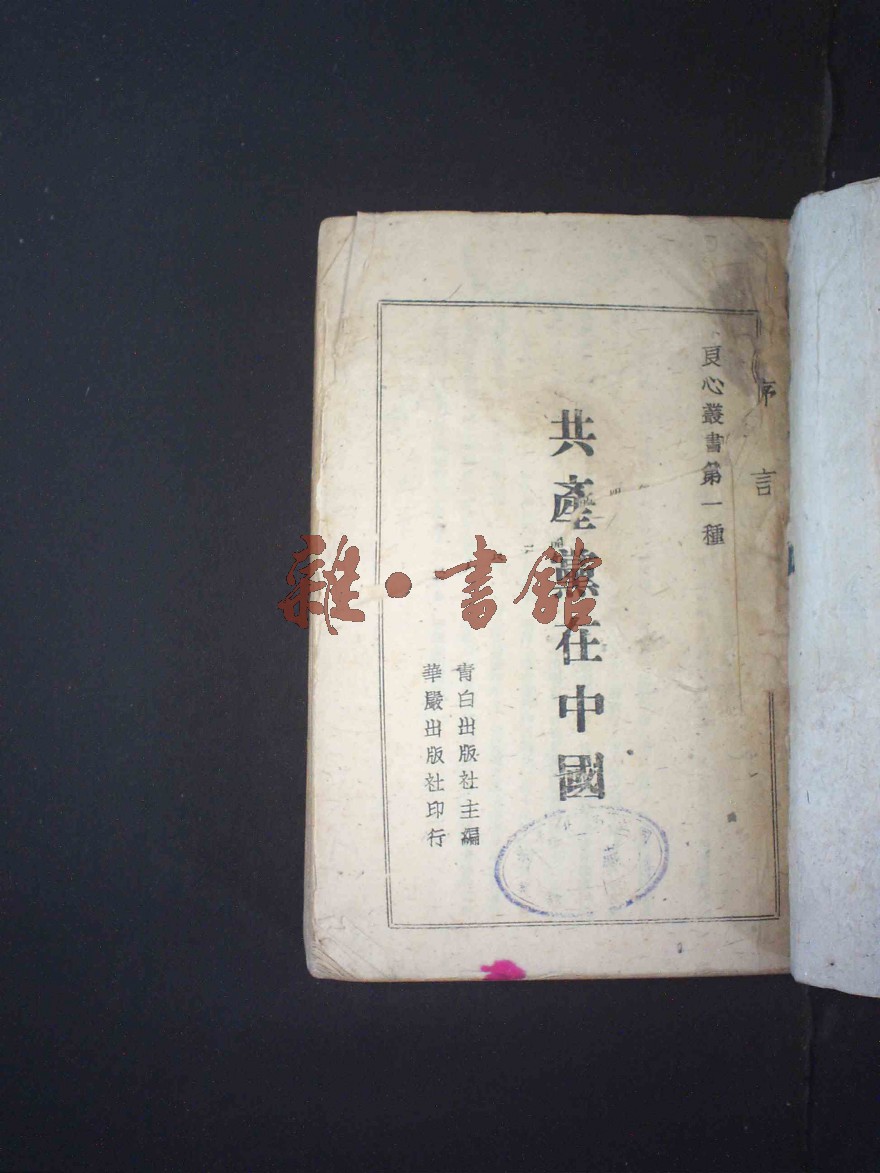 序言
良心叢書第一種
共產黨在中國
青白出版社主編
華嚴出版社印行
雜·書館